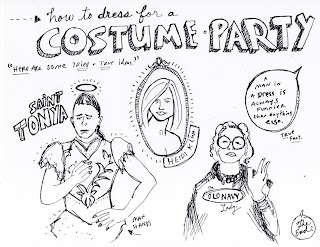 how to dress for a
COSTUME PARTY
"HERE ARE some TRIED + TRUE ideas."
SAINT
TONYA
HEIDI KLUM
MAN
HANDS
A
MAN IN
A DRESS is
ALWAYS
FUNNIER
than anything
ELSE.
TRUE
FACT.
The
OLD NAVY
Lady
The
End.